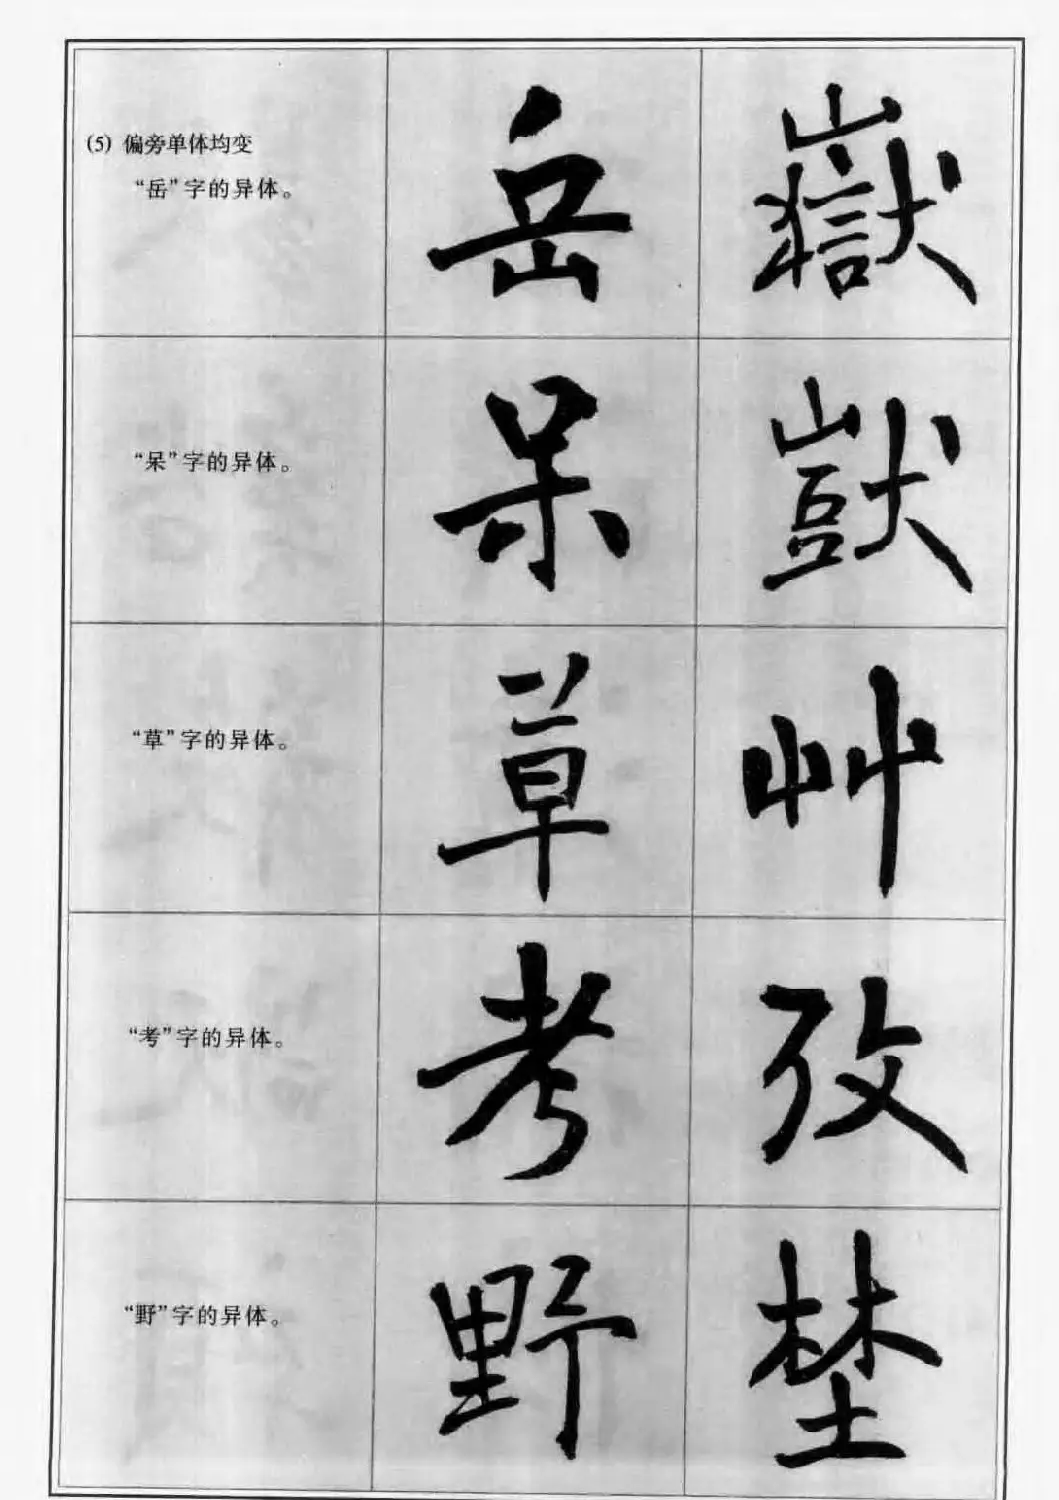 (5) 偏旁单体均变
“岳”字的异体。
岳 嶽
“呆”字的异体。
呆 獃
“草”字的异体。
草 艸
“考”字的异体。
考 攷
“野”字的异体。
野 埜